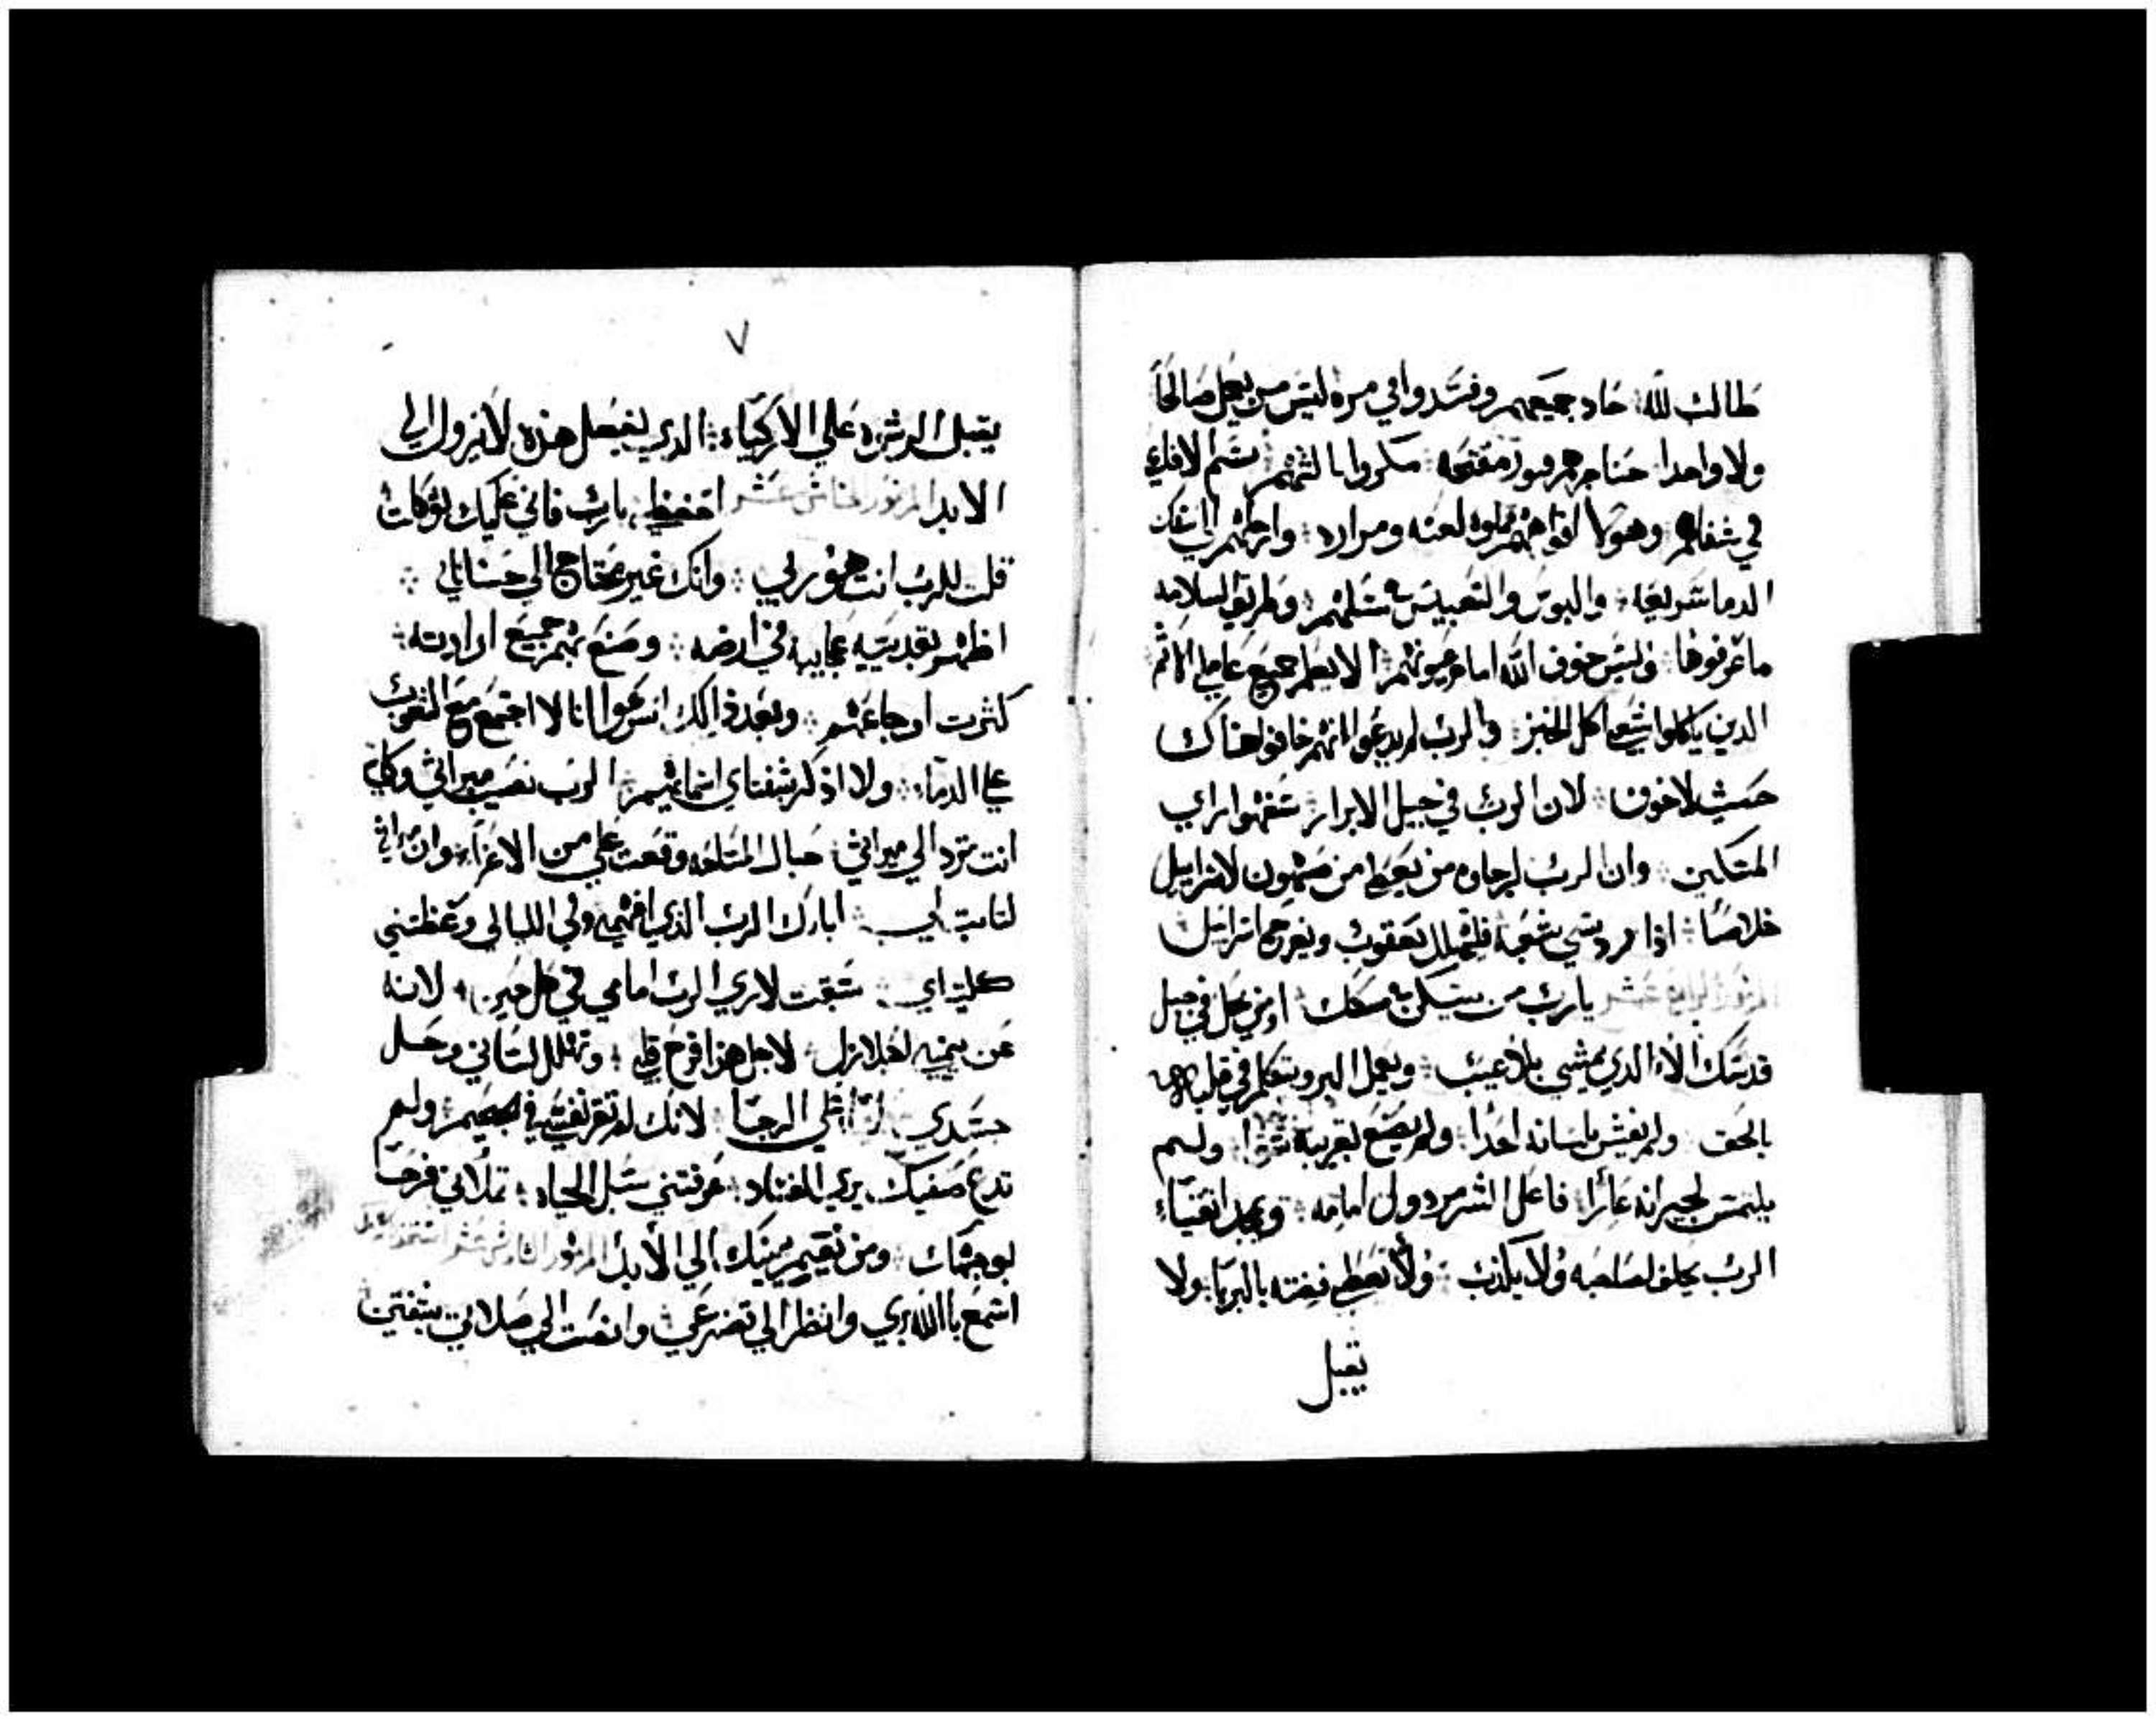 طالب لله حاد جميعهم وفسدوا في مره ليس من يعمل صالحاً
ولا واحدا حناجرهم قبور مفتحه مكروا بالسنتهم سم الافاعي
في شفاههم وهولا افواههم مملوه لعنه ومراره وارجلهم الي سفك
الدما سريعه والبوس والتعبيس في سبلهم وطريق السلامه
ما عرفوها وليس خوف الله امام عيونهم الا يعلم جميع عاملي الاثم
الدين ياكلوا شعبي اكل الخبز والرب لم يدعوا انهم خافوا هناك
حيث لا خوف لان الرب في جيل الابرار سفهوا راي
المتكلين وان الرب لرجاوه من يعطي من صهيون لاسراييل
خلاصاً اذا مرد سبي شعبه فليتهلل يعقوب ويفرح اسراييل
المزمور الرابع عشر يارب من يسكن في مسكنك او من يحل في جبل
قدسك الا الدي يمشي بلا عيب ويعمل البر ويتكلم في قلبه
بالحق ولم يغش بلسانه احدا ولم يصنع بقريبه شرا ولم
يلتمس لجيرانه عاراً فاعل الشر مردول امامه ويمجد اتقياء
الرب يحلف لصاحبه ولا يكذب ولا يعطي فضته بالربا ولا
يقبل
٧
يقبل الرشوه علي الازكياء الدي يفعل هذه لا يزول الي
الابد المزمور الخامس عشر احفظني يارب فاني عليك توكلت
قلت للرب انت هو ربي وانك غير محتاج الي حسناتي
اظهر لقديسيه عجايبه في ارضه وصنع بهم جميع ارادته
كثرت اوجاعهم وبعد ذالك اسرعوا انا لا اجتمع مع الشعوب
علي الدماء ولا اذكر بشفتاي اسماءهم الرب نصيب ميراثي وكاسي
انت ترد الي ميراثي حبال المساحه وقعت علي من الاعزاء وان ميراثي
لثابت لي ابارك الرب الذي افهمني وفي الليالي وعظتني
كليتاي سبقت لاري الرب امامي في كل حين لانه
عن يميني لكيلا ازل لاجل هذا فرح قلبي وتهلل لساني وحل
جسدي علي الرجا لانك لم تترك نفسي في الجحيم ولم
تدع صفيك يري الفساد عرفتني سبل الحياه تملاني فرحا
بوجهك ومن نعيم يمينك الي الأبد المزمور السادس عشر
استمع يا الله بري وانظر الي تضرعي وانصت الي صلاتي بشفتين